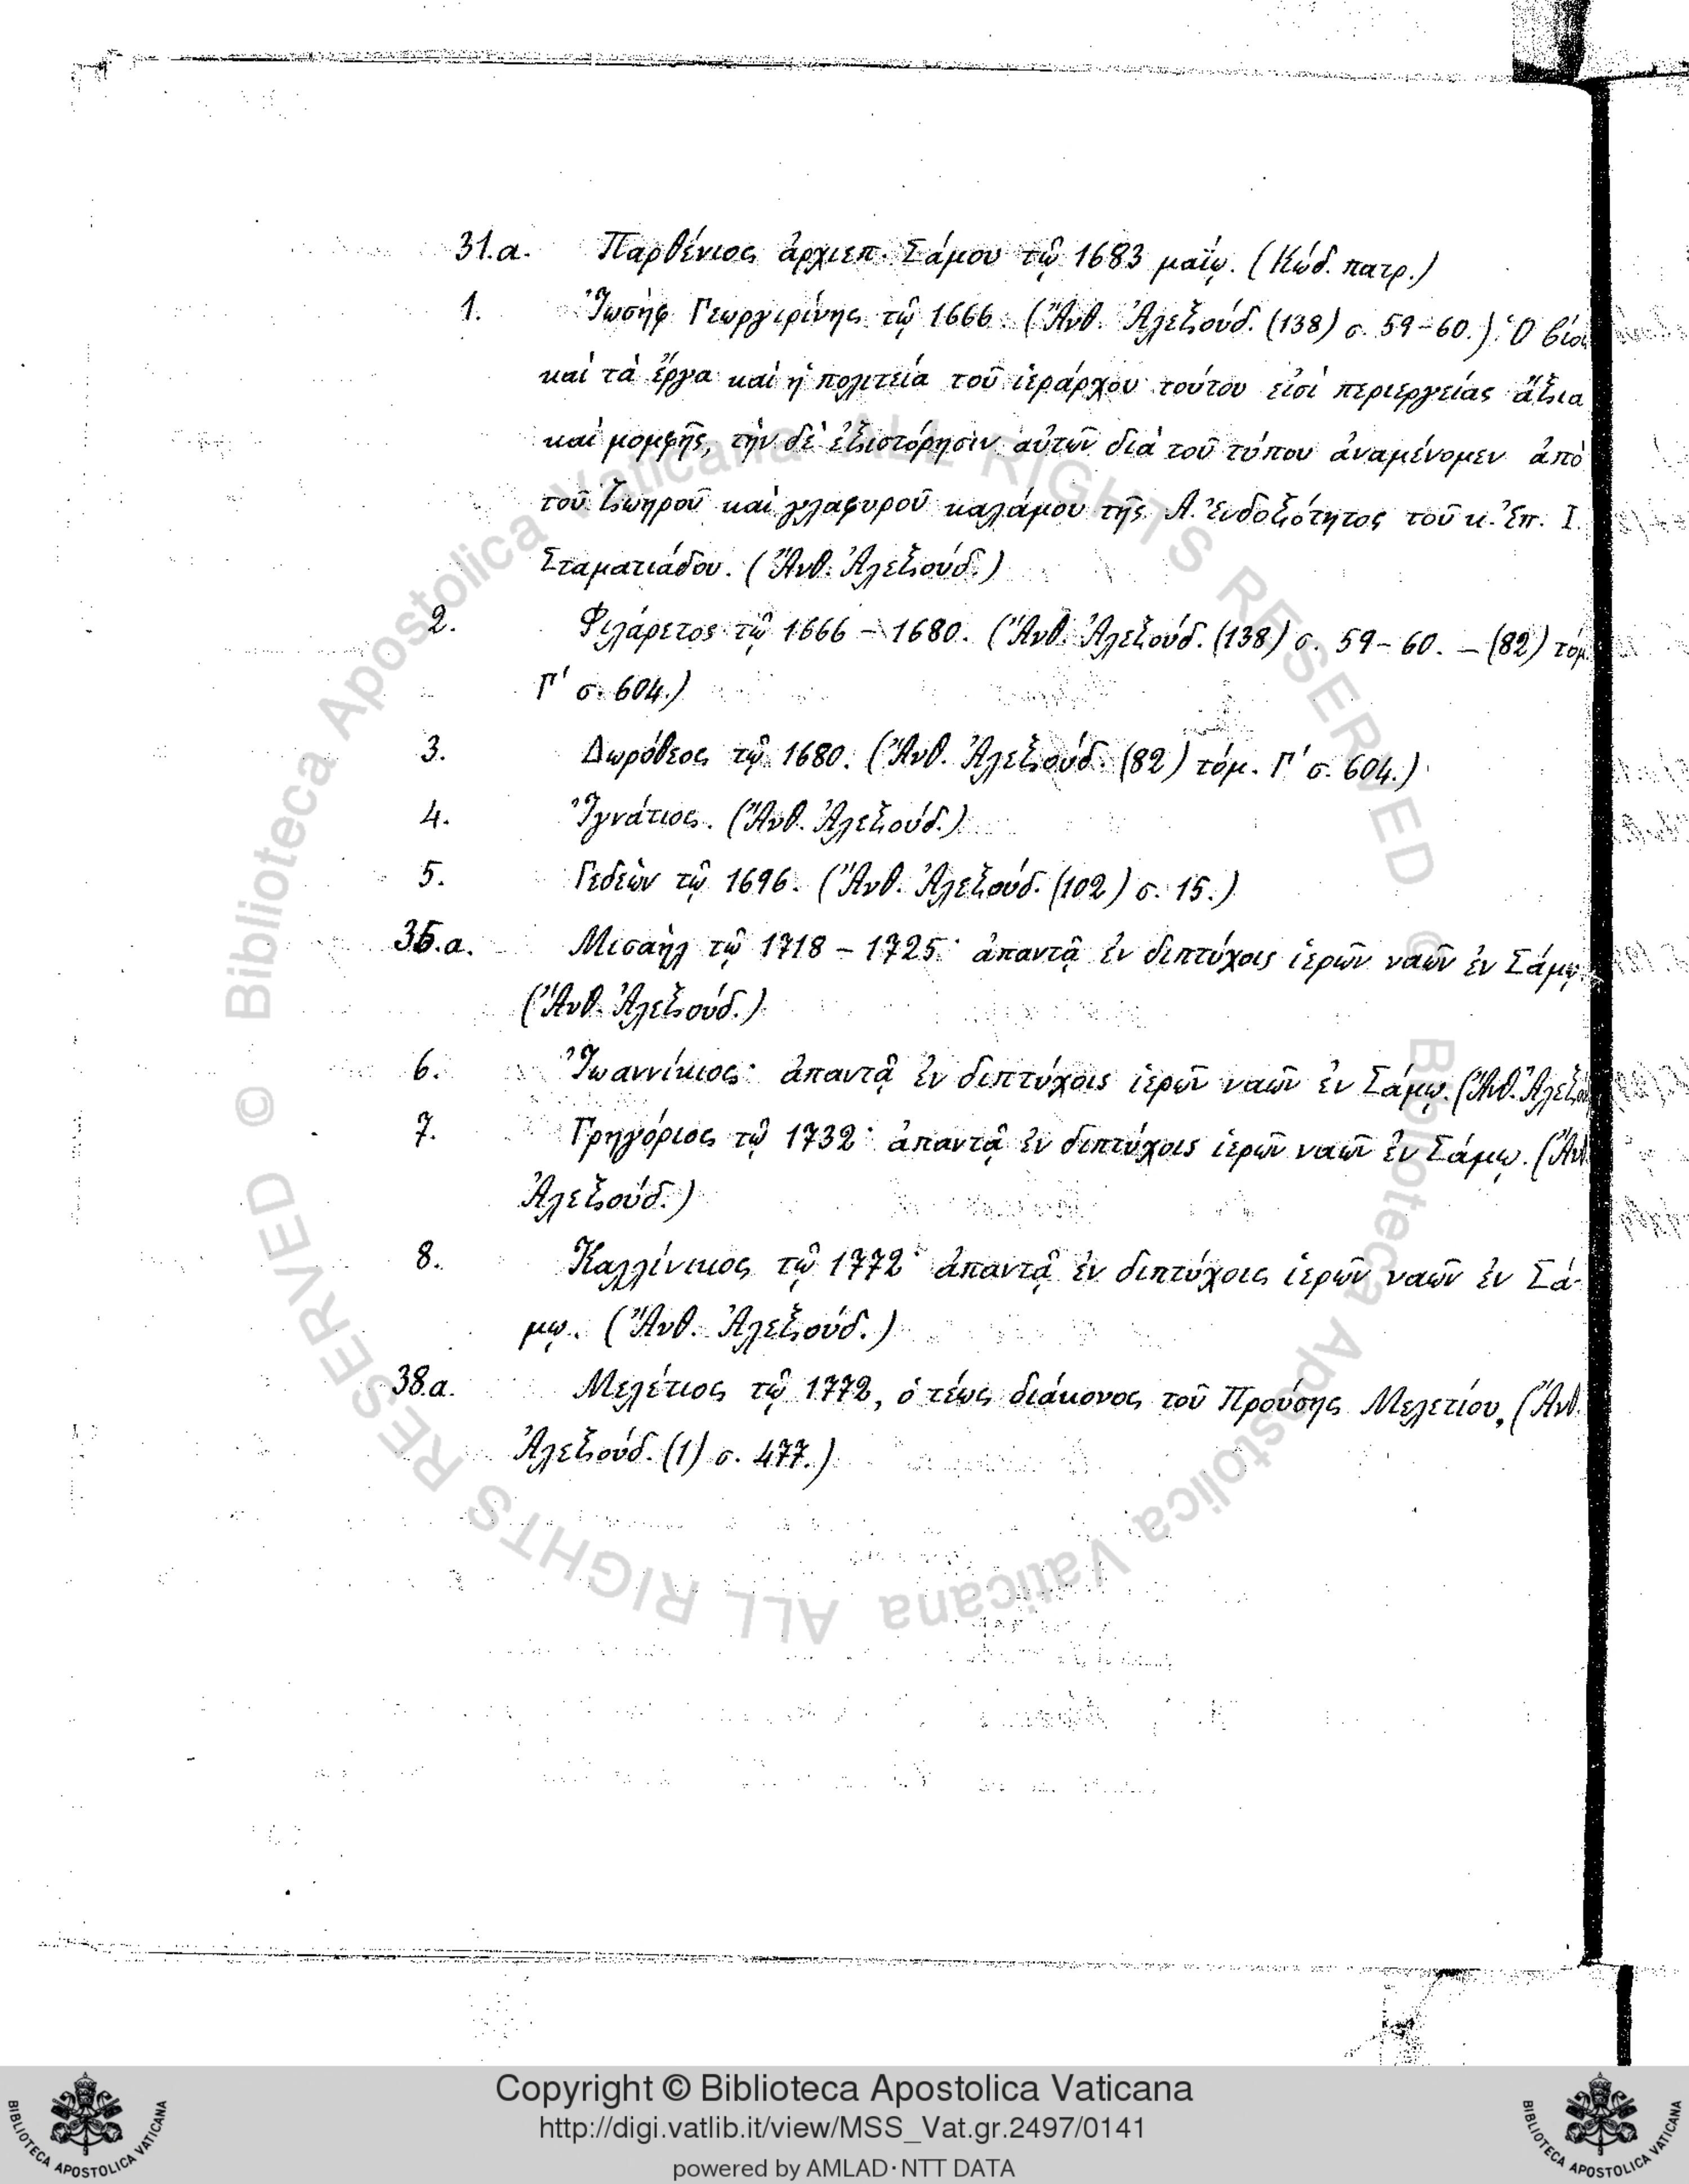 31.α. Παρθένιος ἀρχιεπ. Σάμου τῷ 1683 μαΐῳ. (Κώδ. πατρ.)
1. Ἰωσὴφ Γεωργιρίνης τῷ 1666. (Ἄνθ. Ἀλεξούδ. (138) σ. 59-60.) Ὁ βίος
καὶ τὰ ἔργα καὶ ἡ πολιτεία τοῦ ἱεράρχου τούτου εἰσὶ περιεργείας ἄξια
καὶ μομφῆς, τὴν δὲ ἐξιστόρησιν αὐτῶν διὰ τοῦ τύπου ἀναμένομεν ἀπὸ
τοῦ ζωηροῦ καὶ γλαφυροῦ καλάμου τῆς Α. Ἐνδοξότητος τοῦ κ. Ἐπ. Ι.
Σταματιάδου. (Ἄνθ. Ἀλεξούδ.)
2. Φιλάρετος τῷ 1666 - 1680. (Ἄνθ. Ἀλεξούδ. (138) σ. 59-60. - (82) τόμ.
Γ' σ. 604.)
3. Δωρόθεος τῷ 1680. (Ἄνθ. Ἀλεξούδ. (82) τόμ. Γ' σ. 604.)
4. Ἰγνάτιος. (Ἄνθ. Ἀλεξούδ.)
5. Γεδεὼν τῷ 1696. (Ἄνθ. Ἀλεξούδ. (102) σ. 15.)
35.α. Μισαὴλ τῷ 1718 - 1725· ἀπαντᾷ ἐν διπτύχοις ἱερῶν ναῶν ἐν Σάμῳ.
(Ἄνθ. Ἀλεξούδ.)
6. Ἰωαννίκιος· ἀπαντᾷ ἐν διπτύχοις ἱερῶν ναῶν ἐν Σάμῳ. (Ἄνθ. Ἀλεξο
7. Γρηγόριος τῷ 1732· ἀπαντᾷ ἐν διπτύχοις ἱερῶν ναῶν ἐν Σάμῳ. (Ἄνθ
Ἀλεξούδ.)
8. Καλλίνικος τῷ 1772· ἀπαντᾷ ἐν διπτύχοις ἱερῶν ναῶν ἐν Σά-
μῳ. (Ἄνθ. Ἀλεξούδ.)
38.α. Μελέτιος τῷ 1772, ὁ τέως διάκονος τοῦ Προύσης Μελετίου, (Ἄνθ.
Ἀλεξούδ. (1) σ. 477.)
© Biblioteca Apostolica Vaticana ALL RIGHTS RESERVED
© Biblioteca Apostolica Vaticana ALL RIGHTS RESERVED
Copyright © Biblioteca Apostolica Vaticana
http://digi.vatlib.it/view/MSS_Vat.gr.2497/0141
powered by AMLAD·NTT DATA
BIBLIOTECA APOSTOLICA VATICANA
BIBLIOTECA APOSTOLICA VATICANA